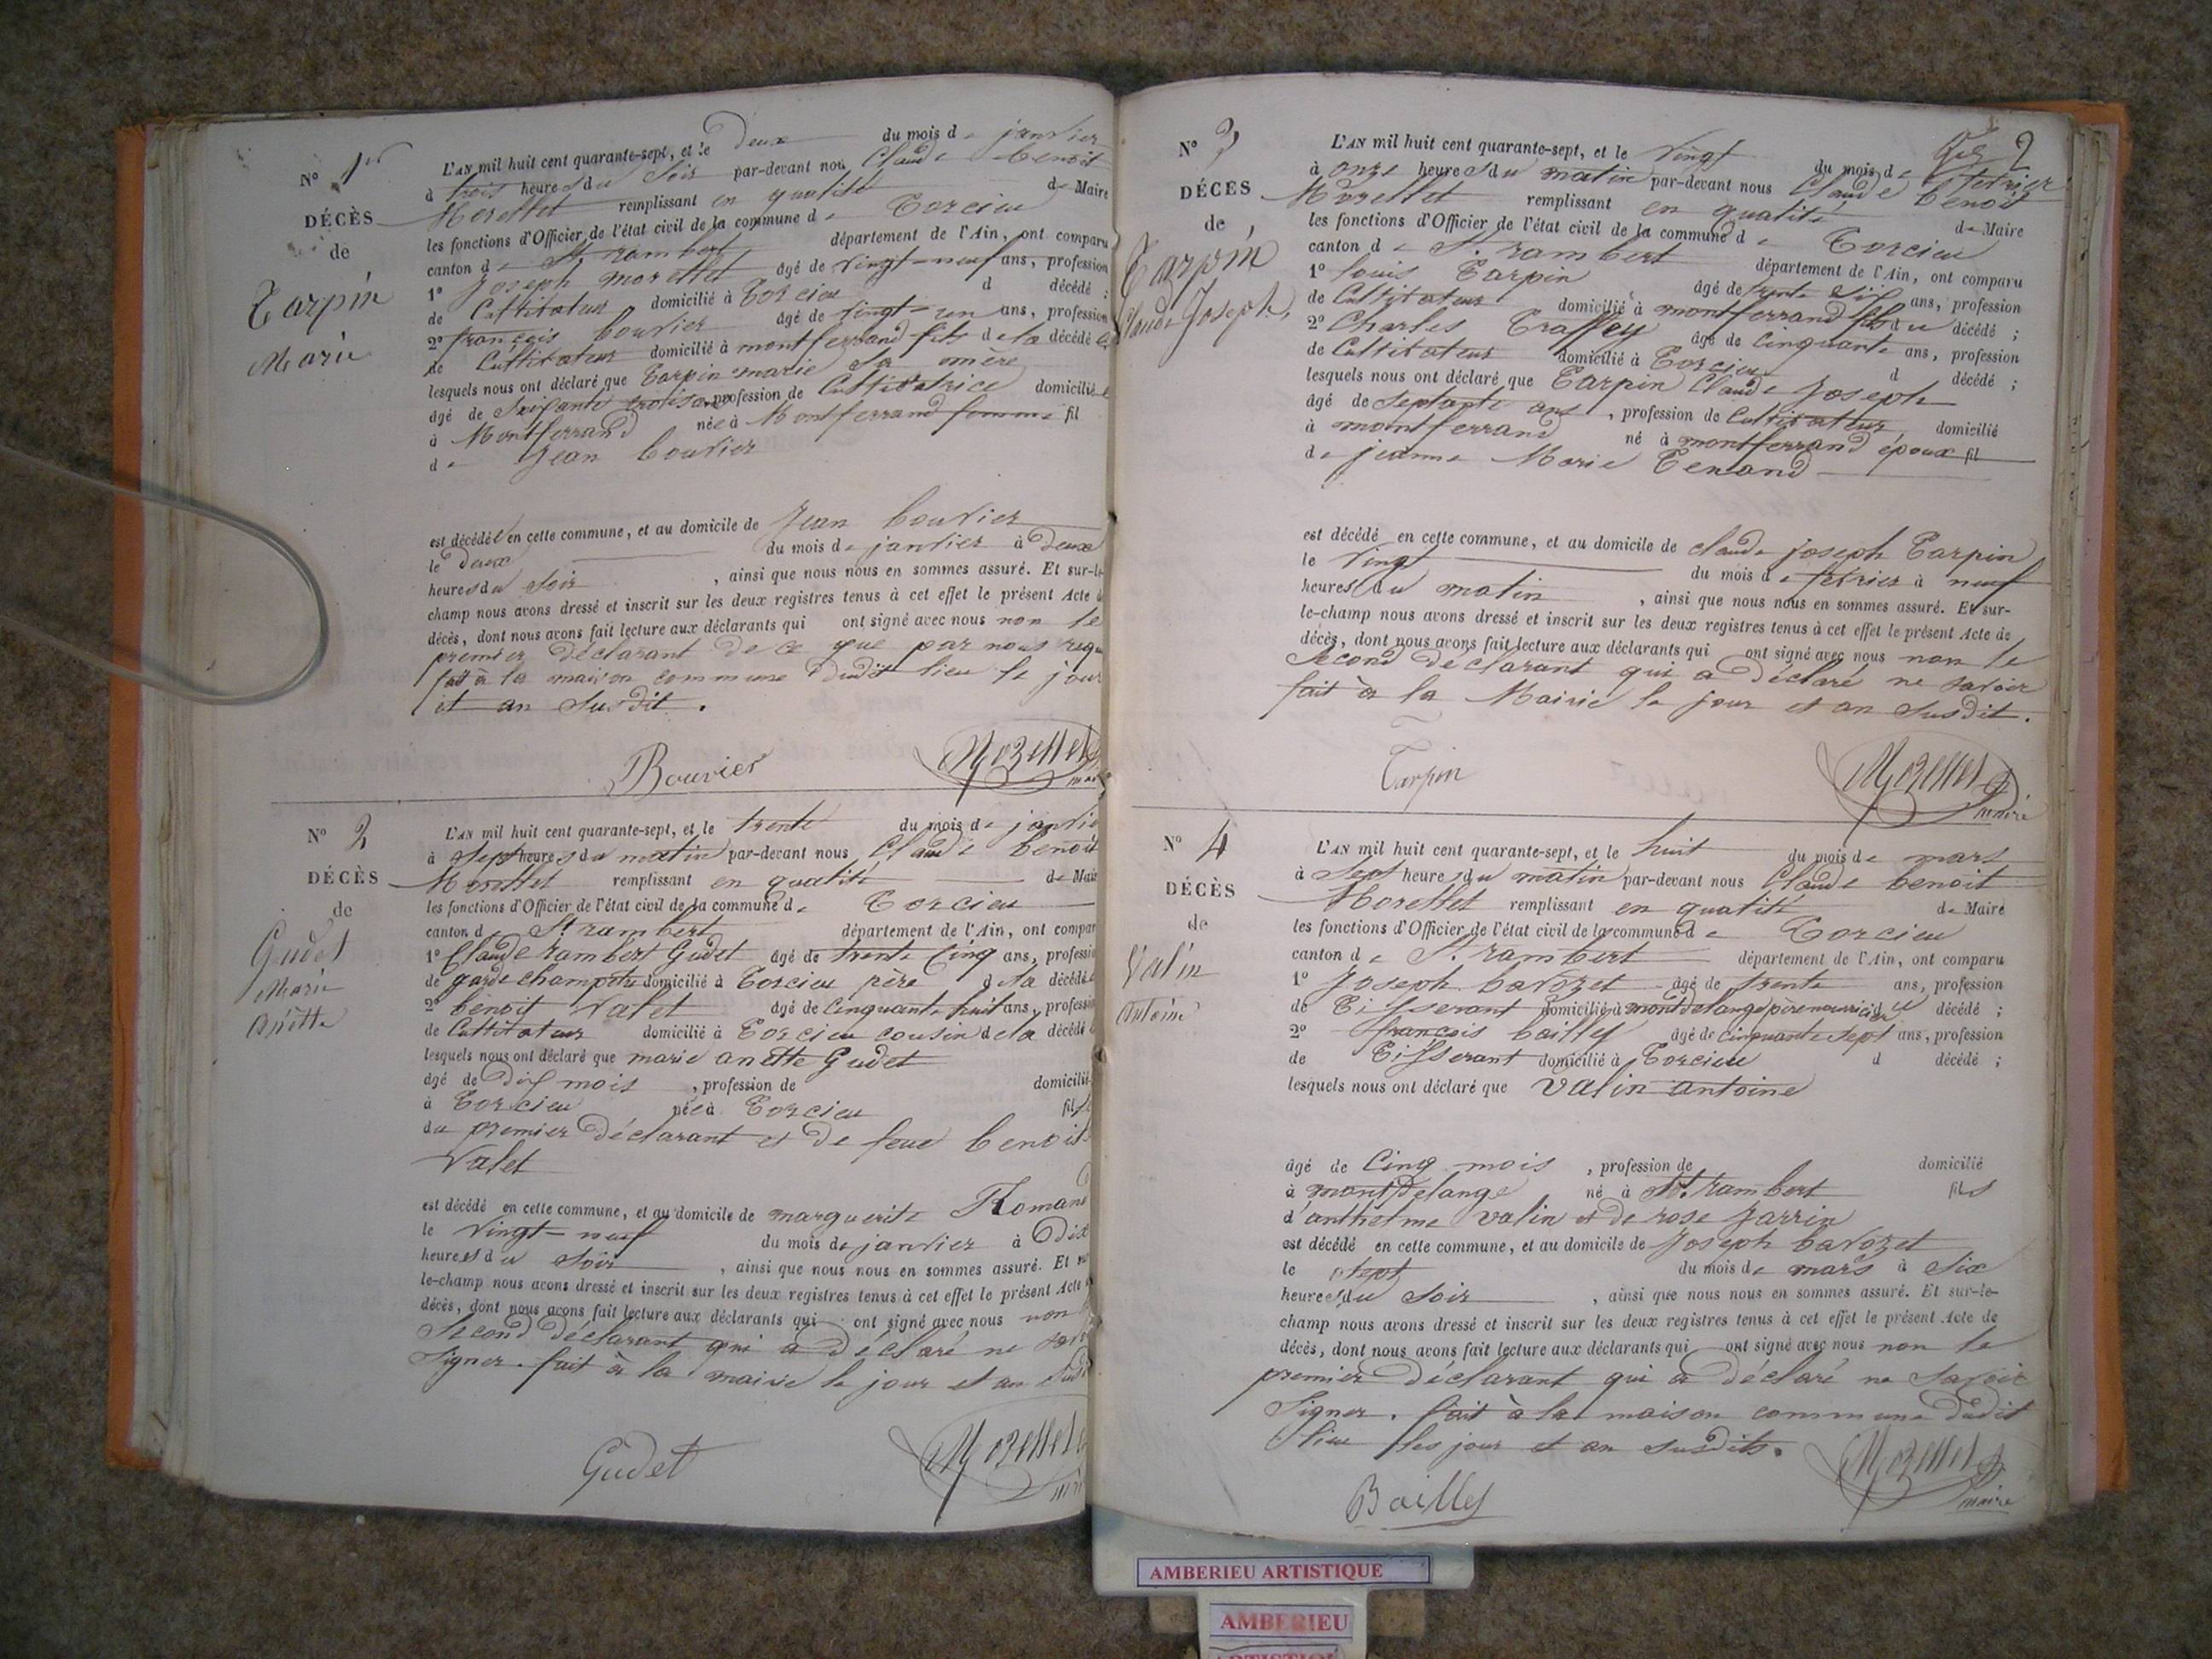 N° 1er
DÉCÈS
de
Tarpin
Marie
L'AN mil huit cent quarante-sept, et le Deux du mois de janvier
à trois heures du Soir par-devant nous Claude benoit
Morellet remplissant en qualité de Maire
les fonctions d'Officier de l'état civil de la commune de Torcieu
canton de St rambert département de l'Ain, ont comparu
1° Joseph morellet âgé de vingt-neuf ans, profession
de Cultivateur domicilié à Torcieu d décédé ;
2° françois bouvier âgé de vingt-un ans, profession
de Cultivateur domicilié à montferrand fils de la décédé
lesquels nous ont déclaré que Tarpin marie sa mère
âgé de Soixante trois ans profession de Cultivatrice domiciliée
à Montferrand née à Montferrand femme fil
de Jean bouvier
est décédée en cette commune, et au domicile de Jean bouvier
le deux du mois de janvier à Deux
heures du Soir , ainsi que nous nous en sommes assuré. Et sur-le-
champ nous avons dressé et inscrit sur les deux registres tenus à cet effet le présent Acte
décès, dont nous avons fait lecture aux déclarants qui ont signé avec nous non le
premier déclarant de ce que par nous requ
fait à la maison commune dudit lieu le jour
et an susdit.
Bouvier Morellet
N° 2
DÉCÈS
de
Gudet
Marie
Anette
L'AN mil huit cent quarante-sept, et le trente du mois de janvie
à Sept heures du matin par-devant nous Claude benoit
Morellet remplissant en qualité de Mair
les fonctions d'Officier de l'état civil de la commune de Torcieu
canton d St rambert département de l'Ain, ont compar
1° Claude rambert Gudet âgé de trente Cinq ans, professi
de garde champêtre domicilié à Torcieu père d la décédé
2° benoit Valet âgé de Cinquante huit ans, professi
de Cultivateur domicilié à Torcieu cousin de la décédé
lesquels nous ont déclaré que marie anette Gudet
âgé de Dix mois , profession de domicilié
à Torcieu née à Torcieu fille
du premier déclarant et de feue benoit
Valet
est décédé en cette commune, et au domicile de marguerite Romand
le Vingt-neuf du mois de janvier à Dix
heures du Soir , ainsi que nous nous en sommes assuré. Et
le-champ nous avons dressé et inscrit sur les deux registres tenus à cet effet le présent Acte
décès, dont nous avons fait lecture aux déclarants qui ont signé avec nous non
Second déclarant qui a déclaré ne sav
Signer. fait à la mairie le jour et an susd
Gudet Morellet
2
N° 3
DÉCÈS
de
Tarpin
Claude Joseph
L'AN mil huit cent quarante-sept, et le Vingt du mois de fevrier
à onze heures du matin par-devant nous Claude benoit
Morellet remplissant en qualité de Maire
les fonctions d'Officier de l'état civil de la commune de Torcieu
canton de St. rambert département de l'Ain, ont comparu
1° louis Tarpin âgé de trente Six ans, profession
de Cultivateur domicilié à montferrand fils du décédé ;
2° Charles Traffey âgé de Cinquante ans, profession
de Cultivateur domicilié à Torcieu d décédé ;
lesquels nous ont déclaré que Tarpin Claude Joseph
âgé de Septante ans , profession de Cultivateur domicilié
à montferrand né à montferrand époux fil
de jeanne Marie Tenand
est décédé en cette commune, et au domicile de claude joseph Tarpin
le Vingt du mois de fevrier à neuf
heures du matin , ainsi que nous nous en sommes assuré. Et sur-
le-champ nous avons dressé et inscrit sur les deux registres tenus à cet effet le présent Acte de
décès, dont nous avons fait lecture aux déclarants qui ont signé avec nous non le
Second déclarant qui a déclaré ne savoir
fait à la Mairie le jour et an susdit.
Tarpin Morellet
maire
N° 4
DÉCÈS
de
Valin
Antoine
L'AN mil huit cent quarante-sept, et le huit du mois de mars
à Sept heures du matin par-devant nous Claude benoit
Morellet remplissant en qualité de Maire
les fonctions d'Officier de l'état civil de la commune de Torcieu
canton de St. rambert département de l'Ain, ont comparu
1° Joseph bavozet âgé de trente ans, profession
de Tisserant domicilié à montdelange père nourricier du décédé ;
2° françois bailly âgé de cinquante sept ans, profession
de Tisserant domicilié à Torcieu d décédé ;
lesquels nous ont déclaré que Valin antoine
âgé de Cinq mois , profession de domicilié
à montdelange né à St. rambert fils
d'anthelme valin et de rose Jarrin
est décédé en cette commune, et au domicile de Joseph bavozet
le sept du mois de mars à Six
heures du Soir , ainsi que nous nous en sommes assuré. Et sur-le-
champ nous avons dressé et inscrit sur les deux registres tenus à cet effet le présent Acte de
décès, dont nous avons fait lecture aux déclarants qui ont signé avec nous non le
premier déclarant qui a déclaré ne savoir
Signer. fait à la maison commune dudit
lieu les jour et an susdits.
Bailly Morellet
maire
AMBERIEU ARTISTIQUE
AMBERIEU
ARTISTIQUE